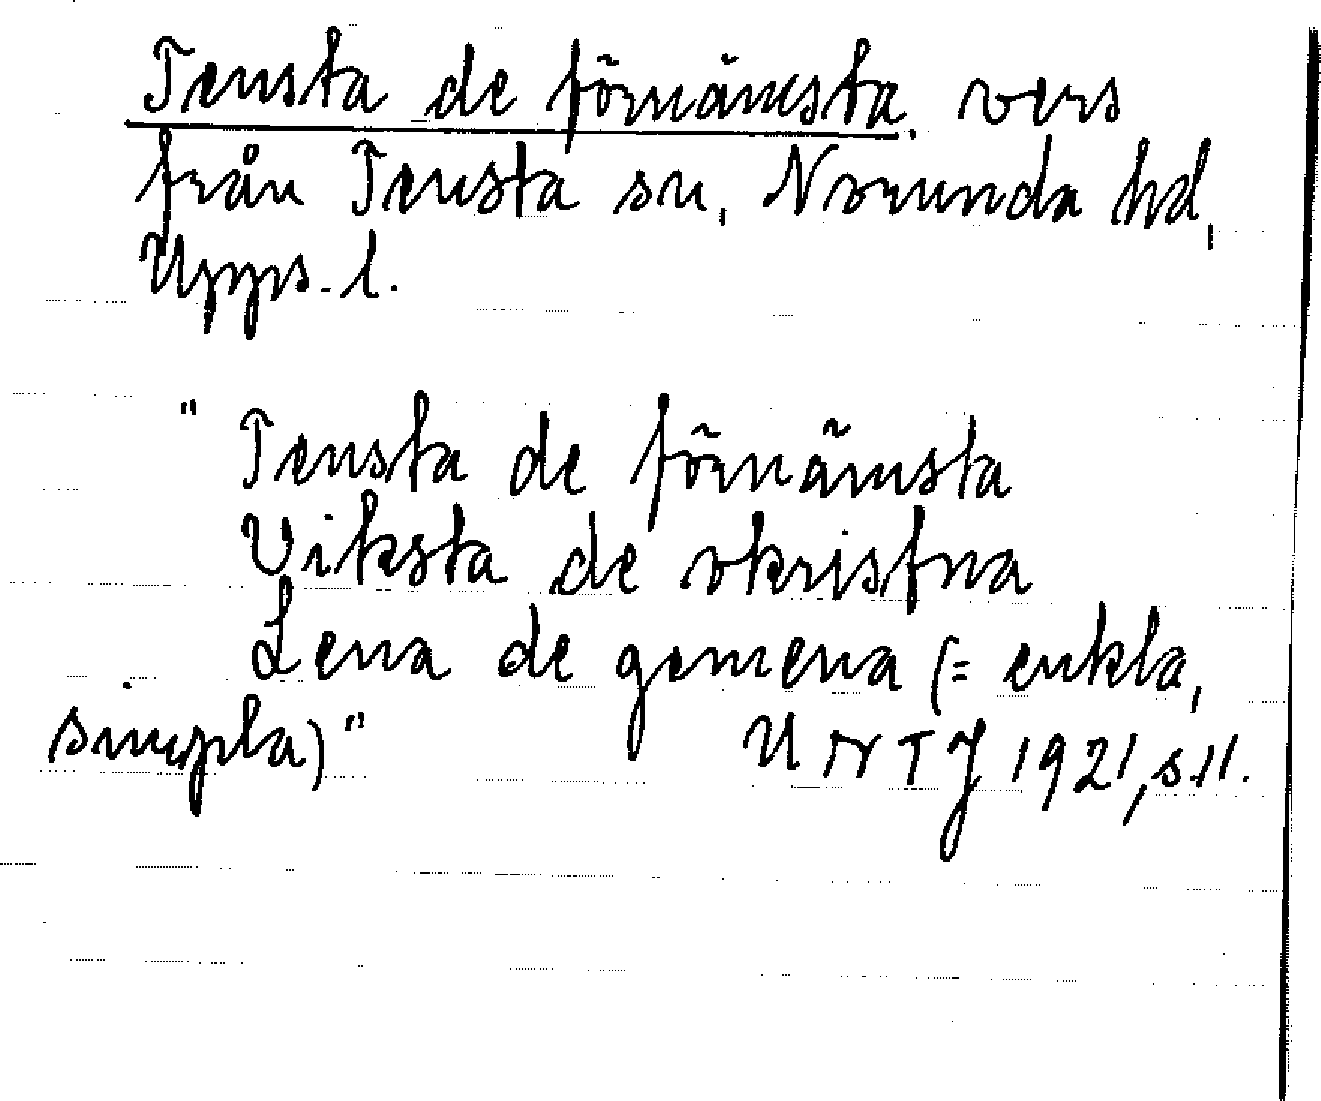 Tensta de förnämsta. vers
från Tensta sn, Norunda hd,
Upps. l.
" Tensta de förnämsta
Viksta de okristna
Lena de gemena (= enkla,
simpla)" UNTJ 1921, s. 11.